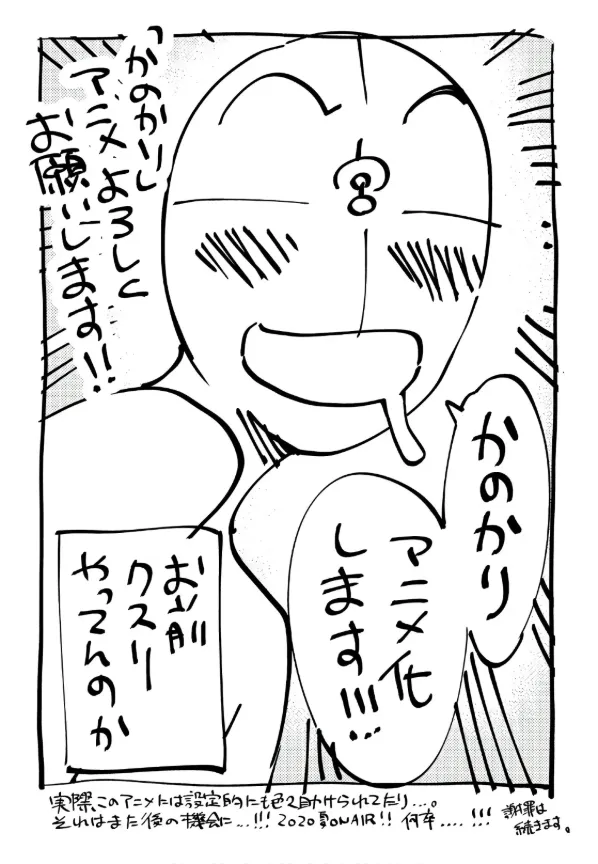 「かのかり」
アニメよろしく
お願いします!!
宮
かのかり
アニメ化
します!!!
お前
クスリ
やってんのか
実際、このアニメには設定的にも色々助けられてたり...。
それはまた後の機会に...!!! 2020夏ONAIR!! 何卒....!!!
謝罪は
続きます。